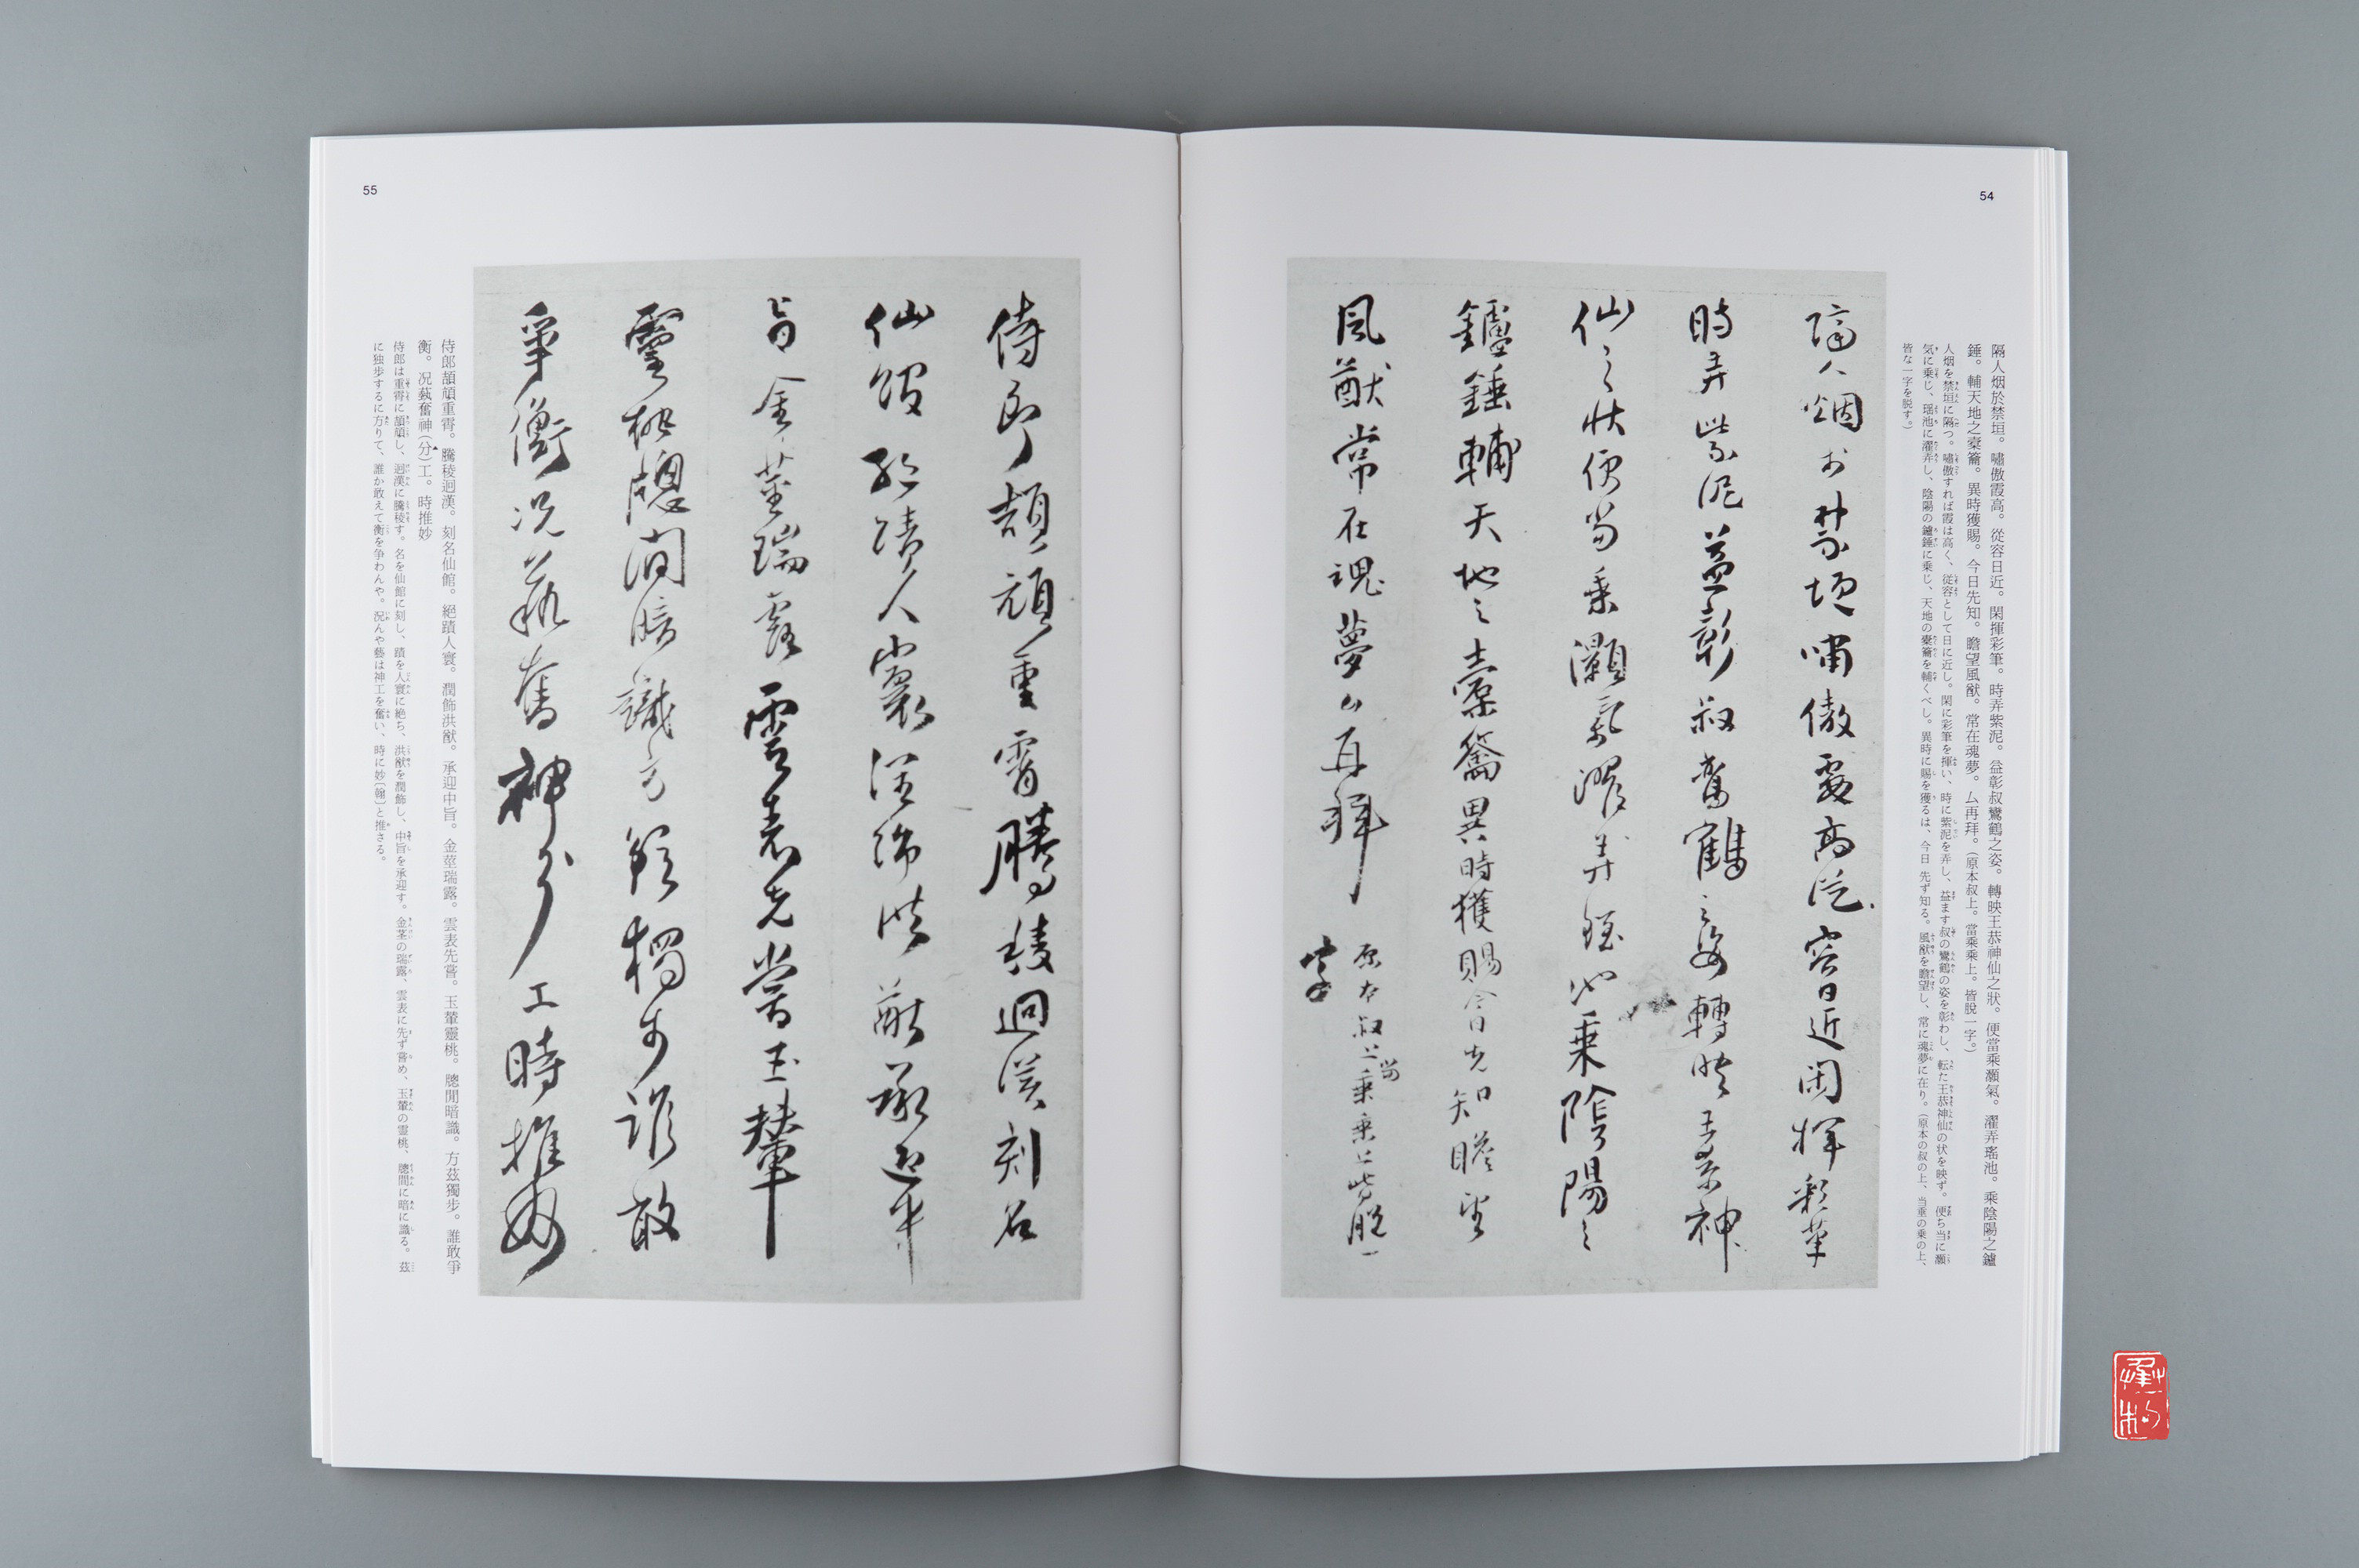 54
隔人烟於禁垣。嘯傲霞高。從容日近。閑揮彩筆。時弄紫泥。益彰叔鸞鶴之姿。轉映王恭神仙之狀。便當乘灝氣。濯弄瑤池。乘陰陽之鑪
錘。輔天地之槖籥。異時獲賜。今日先知。瞻望風猷。常在魂夢。厶再拜。（原本叔上。當乘乘上。皆脫一字。）
人烟を禁垣に隔つ。嘯傲すれば霞は高く、従容として日に近し。閑に彩筆を揮い、時に紫泥を弄し、益ます叔の鸞鶴の姿を彰わし、転た王恭神仙の状を映ず。便ち当に灝
気に乗じ、瑶池に濯弄し、陰陽の鑪錘に乗じ、天地の槖籥を輔くべし。異時に賜を獲るは、今日 先ず知る。風猷を瞻望し、常に魂夢に在り。（原本の叔の上、当乗の乗の上、
皆な一字を脱す。）
隔人烟於禁垣嘯傲霞高從容日近閑揮彩筆
時弄紫泥益彰叔鸞鶴之姿轉映王恭神
仙之狀便當乘灝氣濯弄瑤池乘陰陽之
鑪錘輔天地之槖籥異時獲賜今日先知瞻望
風猷常在魂夢厶再拜
原本叔上當乘乘上皆脫一
字
55
侍郎頡頏重霄。騰稜迥漢。刻名仙館。絕蹟人寰。潤飾洪猷。承迎中旨。金莖瑞露。雲表先嘗。玉輦靈桃。牕間暗識。方茲獨步。誰敢爭
衡。况藝奮神（分）工。時推妙
侍郎は重霄に頡頏し、迥漢に騰稜す。名を仙館に刻し、蹟を人寰に絶ち、洪猷を潤飾し、中旨を承迎す。金茎の瑞露、雲表に先ず嘗め、玉輦の霊桃、牕間に暗に識る。茲
に独歩するに方りて、誰か敢えて衡を争わんや。况んや藝は神工を奮い、時に妙〔翰〕と推さる。
侍郎頡頏重霄騰稜迥漢刻名
仙館絕蹟人寰潤飾洪猷承迎中
旨金莖瑞露雲表先嘗玉輦
靈桃牕間暗識方茲獨步誰敢
爭衡况藝奮神分工時推妙